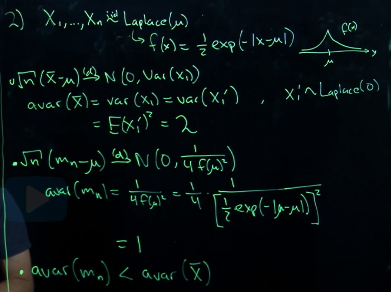 2) X₁,...,Xₙ iid Laplace(μ)
↳ f(x) = 1/2 exp(-|x-μ|)
f(x)
μ
x
• √n (X̄-μ) →(d) N(0, Var(Xᵢ))
avar(X̄) = var(Xᵢ) = var(Xᵢ') , Xᵢ' ~ Laplace(0)
= E(Xᵢ')² = 2
• √n (mₙ-μ) →(d) N(0, 1/(4f(μ)²))
avar(mₙ) = 1/(4f(μ)²) = 1/4 · 1/[1/2 exp(-|μ-μ|)]²
= 1
• avar(mₙ) < avar(X̄)